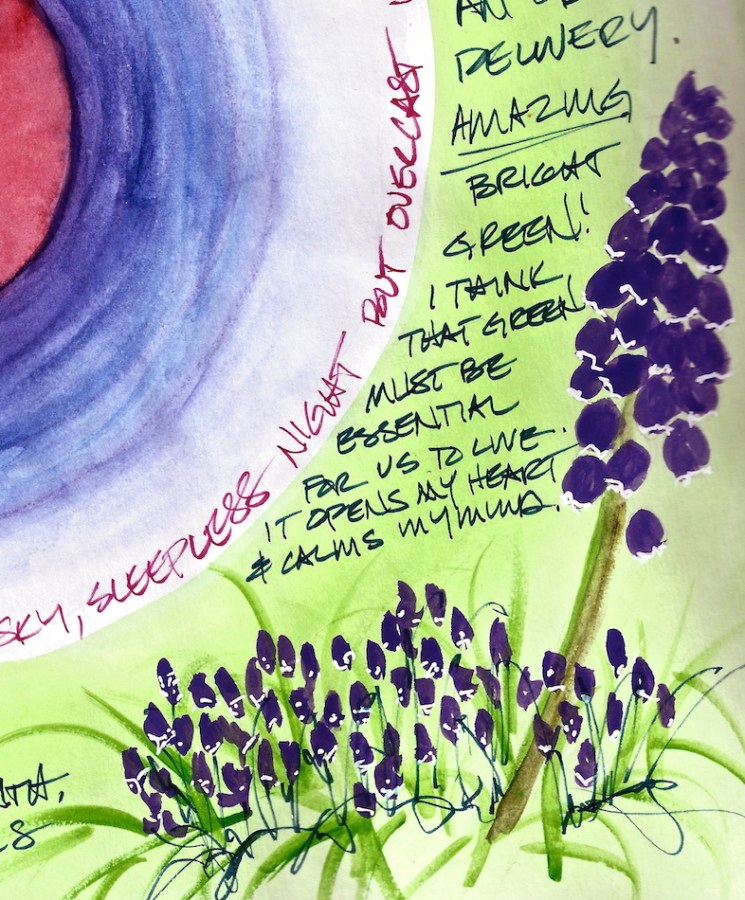 AN
DELIVERY.
AMAZING
BRIGHT
GREEN!
I THINK
THAT GREEN
MUST BE
ESSENTIAL
FOR US TO LIVE.
IT OPENS MY HEART
& CALMS MY MIND.
SKY, SLEEPLESS NIGHT OVERCAST